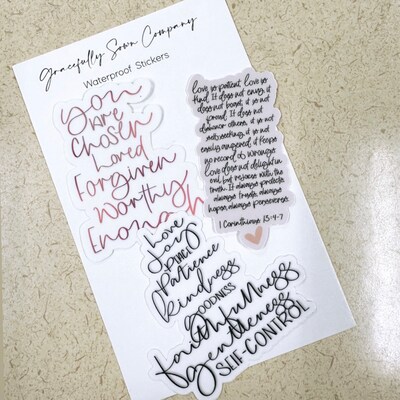 Gracefully Sown Company
Waterproof Stickers
you
are
chosen
Loved
Forgiven
Worthy
Enough
love is patient, love is
kind. It does not envy, it
does not boast, it is not
proud. It does not
dishonor others, it is not
self-seeking, it is not
easily angered, it keeps
no record of wrongs.
Love does not delight in
evil but rejoices with the
truth. It always protects,
always trusts, always
hopes, always perseveres.
1 Corinthians 13:4-7
Love
Joy
PEACE
Patience
kindness
GOODNESS
faithfullness
gentleness
SELF-CONTROL